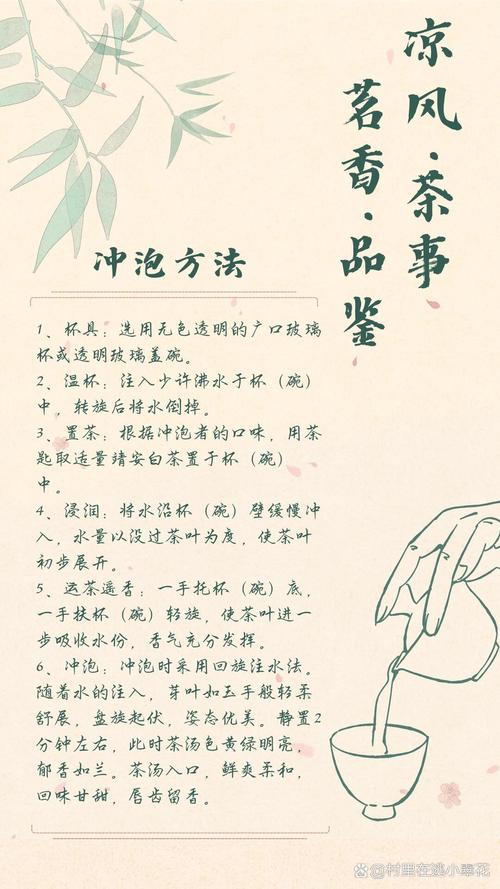 凉风·茶事
茗香·品鉴
冲泡方法
1、杯具：选用无色透明的广口玻璃
杯或透明玻璃盖碗。
2、温杯：注入少许沸水于杯（碗）
中，转旋后将水倒掉。
3、置茶：根据冲泡者的口味，用茶
匙取适量靖安白茶置于杯（碗）
中。
4、浸润：将水沿杯（碗）壁缓慢冲
入，水量以没过茶叶为度，使茶叶
初步展开。
5、运茶遥香：一手托杯（碗）底，
一手扶杯（碗）轻旋，使茶叶进一
步吸收水份，香气充分发挥。
6、冲泡：冲泡时采用回旋注水法。
随着水的注入，芽叶如玉手般轻柔
舒展，盘旋起伏，姿态优美。静置2
分钟左右，此时茶汤色黄绿明亮，
郁香如兰。茶汤入口，鲜爽柔和，
回味甘甜，唇齿留香。
@村里在逃小翠花